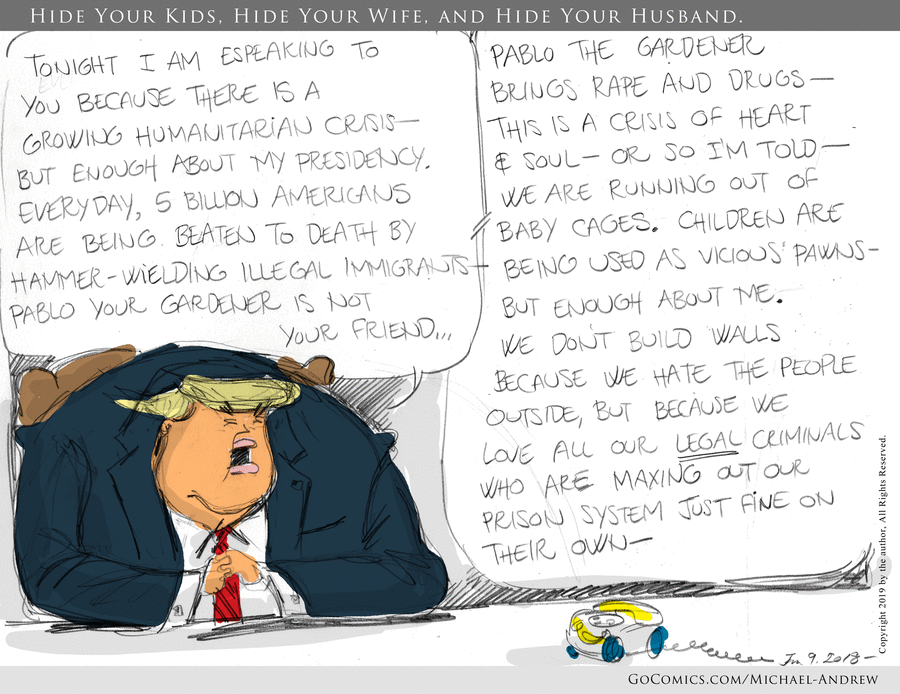 Hide Your Kids, Hide Your Wife, and Hide Your Husband.
TONIGHT I AM ESPEAKING TO
YOU BECAUSE THERE IS A
GROWING HUMANITARIAN CRISIS—
BUT ENOUGH ABOUT MY PRESIDENCY.
EVERYDAY, 5 BILLION AMERICANS
ARE BEING BEATEN TO DEATH BY
HAMMER-WIELDING ILLEGAL IMMIGRANTS—
PABLO YOUR GARDENER IS NOT
YOUR FRIEND...
PABLO THE GARDENER
BRINGS RAPE AND DRUGS—
THIS IS A CRISIS OF HEART
& SOUL— OR SO I'M TOLD—
WE ARE RUNNING OUT OF
BABY CAGES. CHILDREN ARE
BEING USED AS VICIOUS PAWNS—
BUT ENOUGH ABOUT ME.
WE DON'T BUILD WALLS
BECAUSE WE HATE THE PEOPLE
OUTSIDE, BUT BECAUSE WE
LOVE ALL OUR LEGAL CRIMINALS
WHO ARE MAXING OUT OUR
PRISON SYSTEM JUST FINE ON
THEIR OWN—
Copyright 2019 by the author, All Rights Reserved.
Jan 9. 2018—
GoComics.com/Michael-Andrew